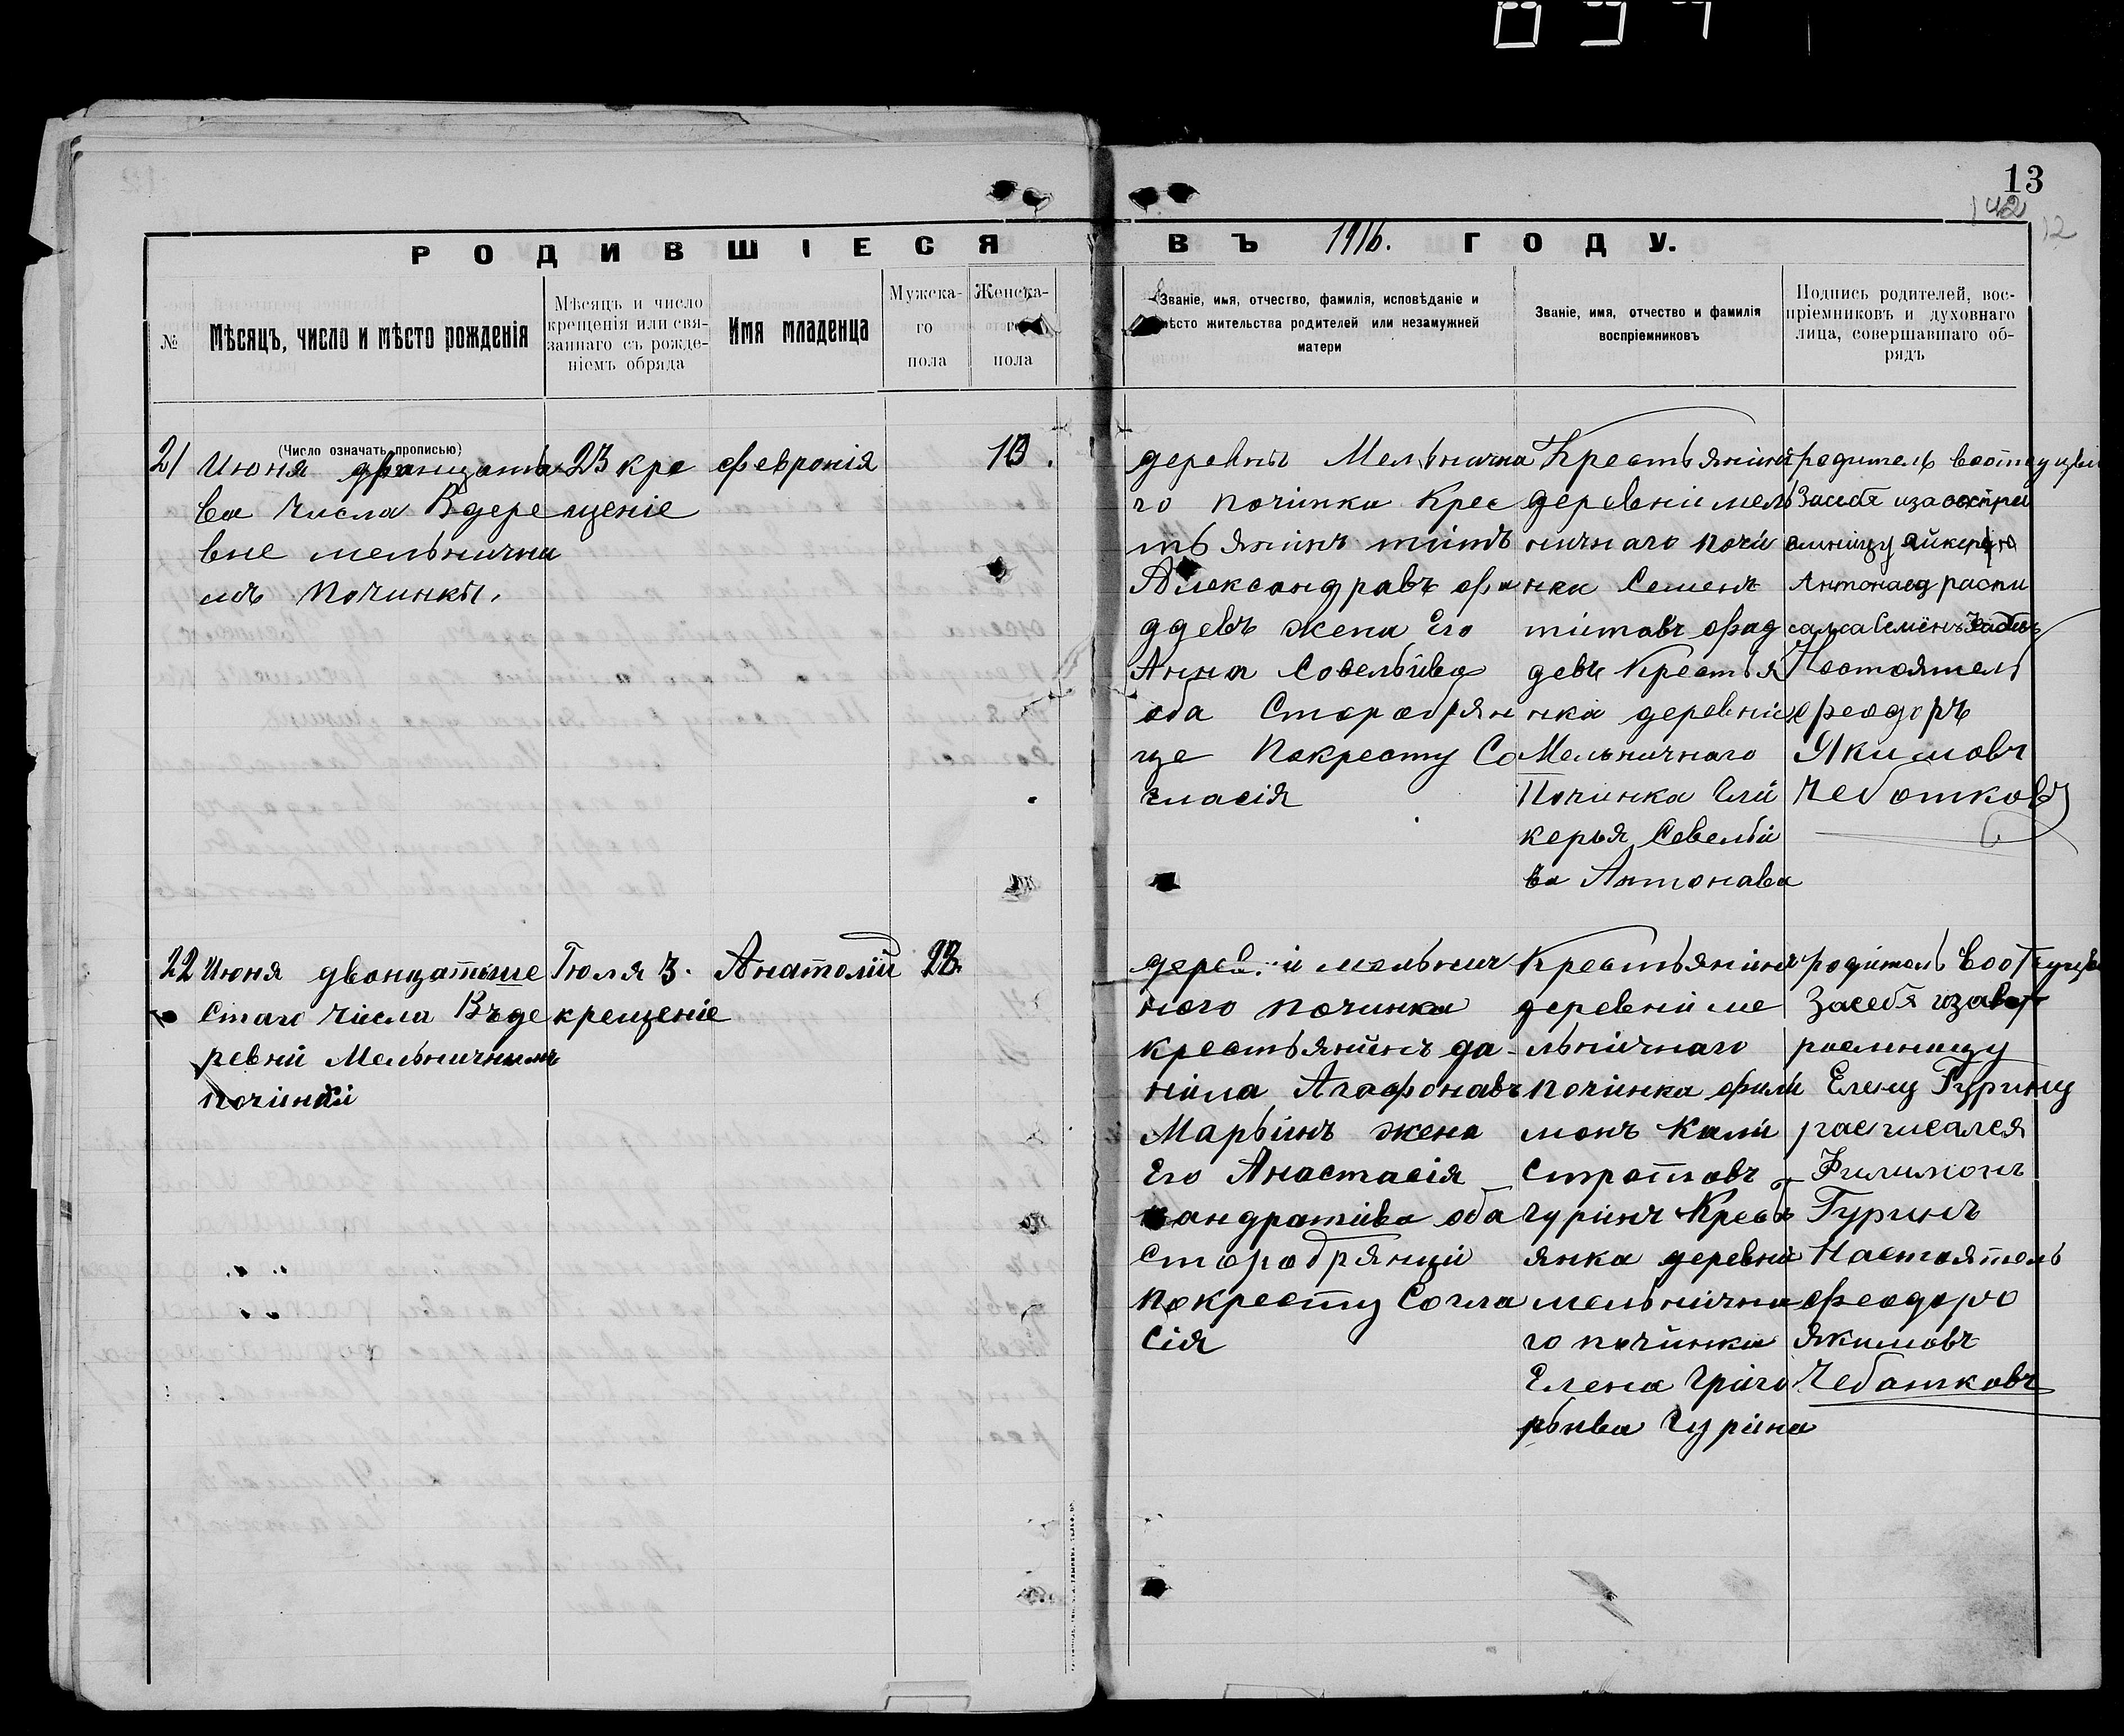 13
142
12
РОДИВШІЕСЯ ВЪ 1916. ГОДУ.
№
Мѣсяцъ, число и мѣсто рожденія
Мѣсяцъ и число
крещенія или свя-
заннаго съ рожде-
ніемъ обряда
Имя младенца
Мужска-
го
пола
Женска-
го
пола
Званіе, имя, отчество, фамилія, исповѣданіе и
мѣсто жительства родителей или незамужней
матери
Званіе, имя, отчество и фамилія
воспріемниковъ
Подпись родителей, вос-
пріемниковъ и духовнаго
лица, совершавшаго об-
рядъ
(Число означать прописью)
21
Июня двацать
ва числа Вдере
вне мельнични
мъ починки.
23 кре
щеніе
Февронія
13.
деревны Мельнична
го почінка Крес
тьянінъ тітъ
Александравъ фа
ддевъ жена Его
Анна Совельива
оба Старобрян
це Покресту Со
гласія
Крестьянінъ
деревніи мель
ничнаго почи
нка Семенъ
тітавъ фад
девъ Крестья
нка деревніи
Мельничнаго
Починка Гли
керья Савельи
ва Антонава
родитель
Засебя иза
Антонаву распи
салса Семёнъ
Настоятель
феодоръ
Якимовъ
Чеботковъ
22
Июня двонцатише
Стаго числа Въде
ревнй Мельничнымъ
почінкй
Іюля 3.
крещеніе
Анатолій
23.
деревни мельнич
ного починка
крестьянинъ да-
ніила Агафонавъ
Марьинъ жена
Его Анастасія
кандратива оба
Старобрянци
покресту Согла
сія
Крестьянінъ
деревнй ме
льнічнаго
почінка фили
монъ Кали
стратовъ
гурінъ Кресь
янка деревни
мельнична
го почйнка
Елена Григо
рьива Гуріна
родітель
Засебя иза
риемницу
Елену Гурину
расписалея
Филимонъ
Гуринъ
Настоятель
феодоръ
Якимовъ
Чебатковъ